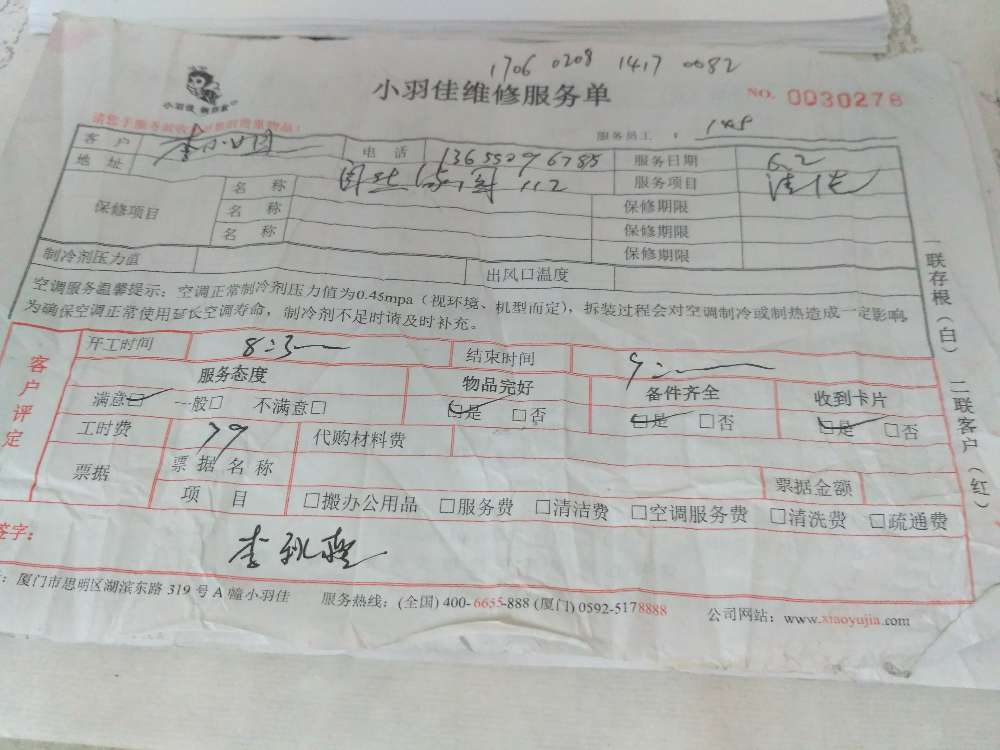 1706 0208 1417 0082
小羽佳维修服务单
NO. 0030278
小羽佳
请您于服务前收
服务员工：
客户 李
电话 13655096785
服务日期 6.2
地址 112
服务项目 清洗
保修项目
名称
保修期限
名称
保修期限
名称
保修期限
制冷剂压力值
出风口温度
空调服务温馨提示：空调正常制冷剂压力值为0.45mpa（视环境、机型而定），拆装过程会对空调制冷或制热造成一定影响。
为确保空调正常使用延长空调寿命，制冷剂不足时请及时补充。
一联存根（白） 二联客户（红）
客户评定
开工时间 8:3
结束时间 9:
服务态度
物品完好
备件齐全
收到卡片
满意□ 一般□ 不满意□
□是 □否
□是 □否
□是 □否
工时费 79
代购材料费
票据
票据名称
票据金额
项目
□搬办公用品 □服务费 □清洁费 □空调服务费 □清洗费 □疏通费
签字：
李
厦门市思明区湖滨东路 319 号 A 幢小羽佳 服务热线：(全国) 400-6655-888 (厦门) 0592-5178888 公司网站：www.xiaoyujia.com